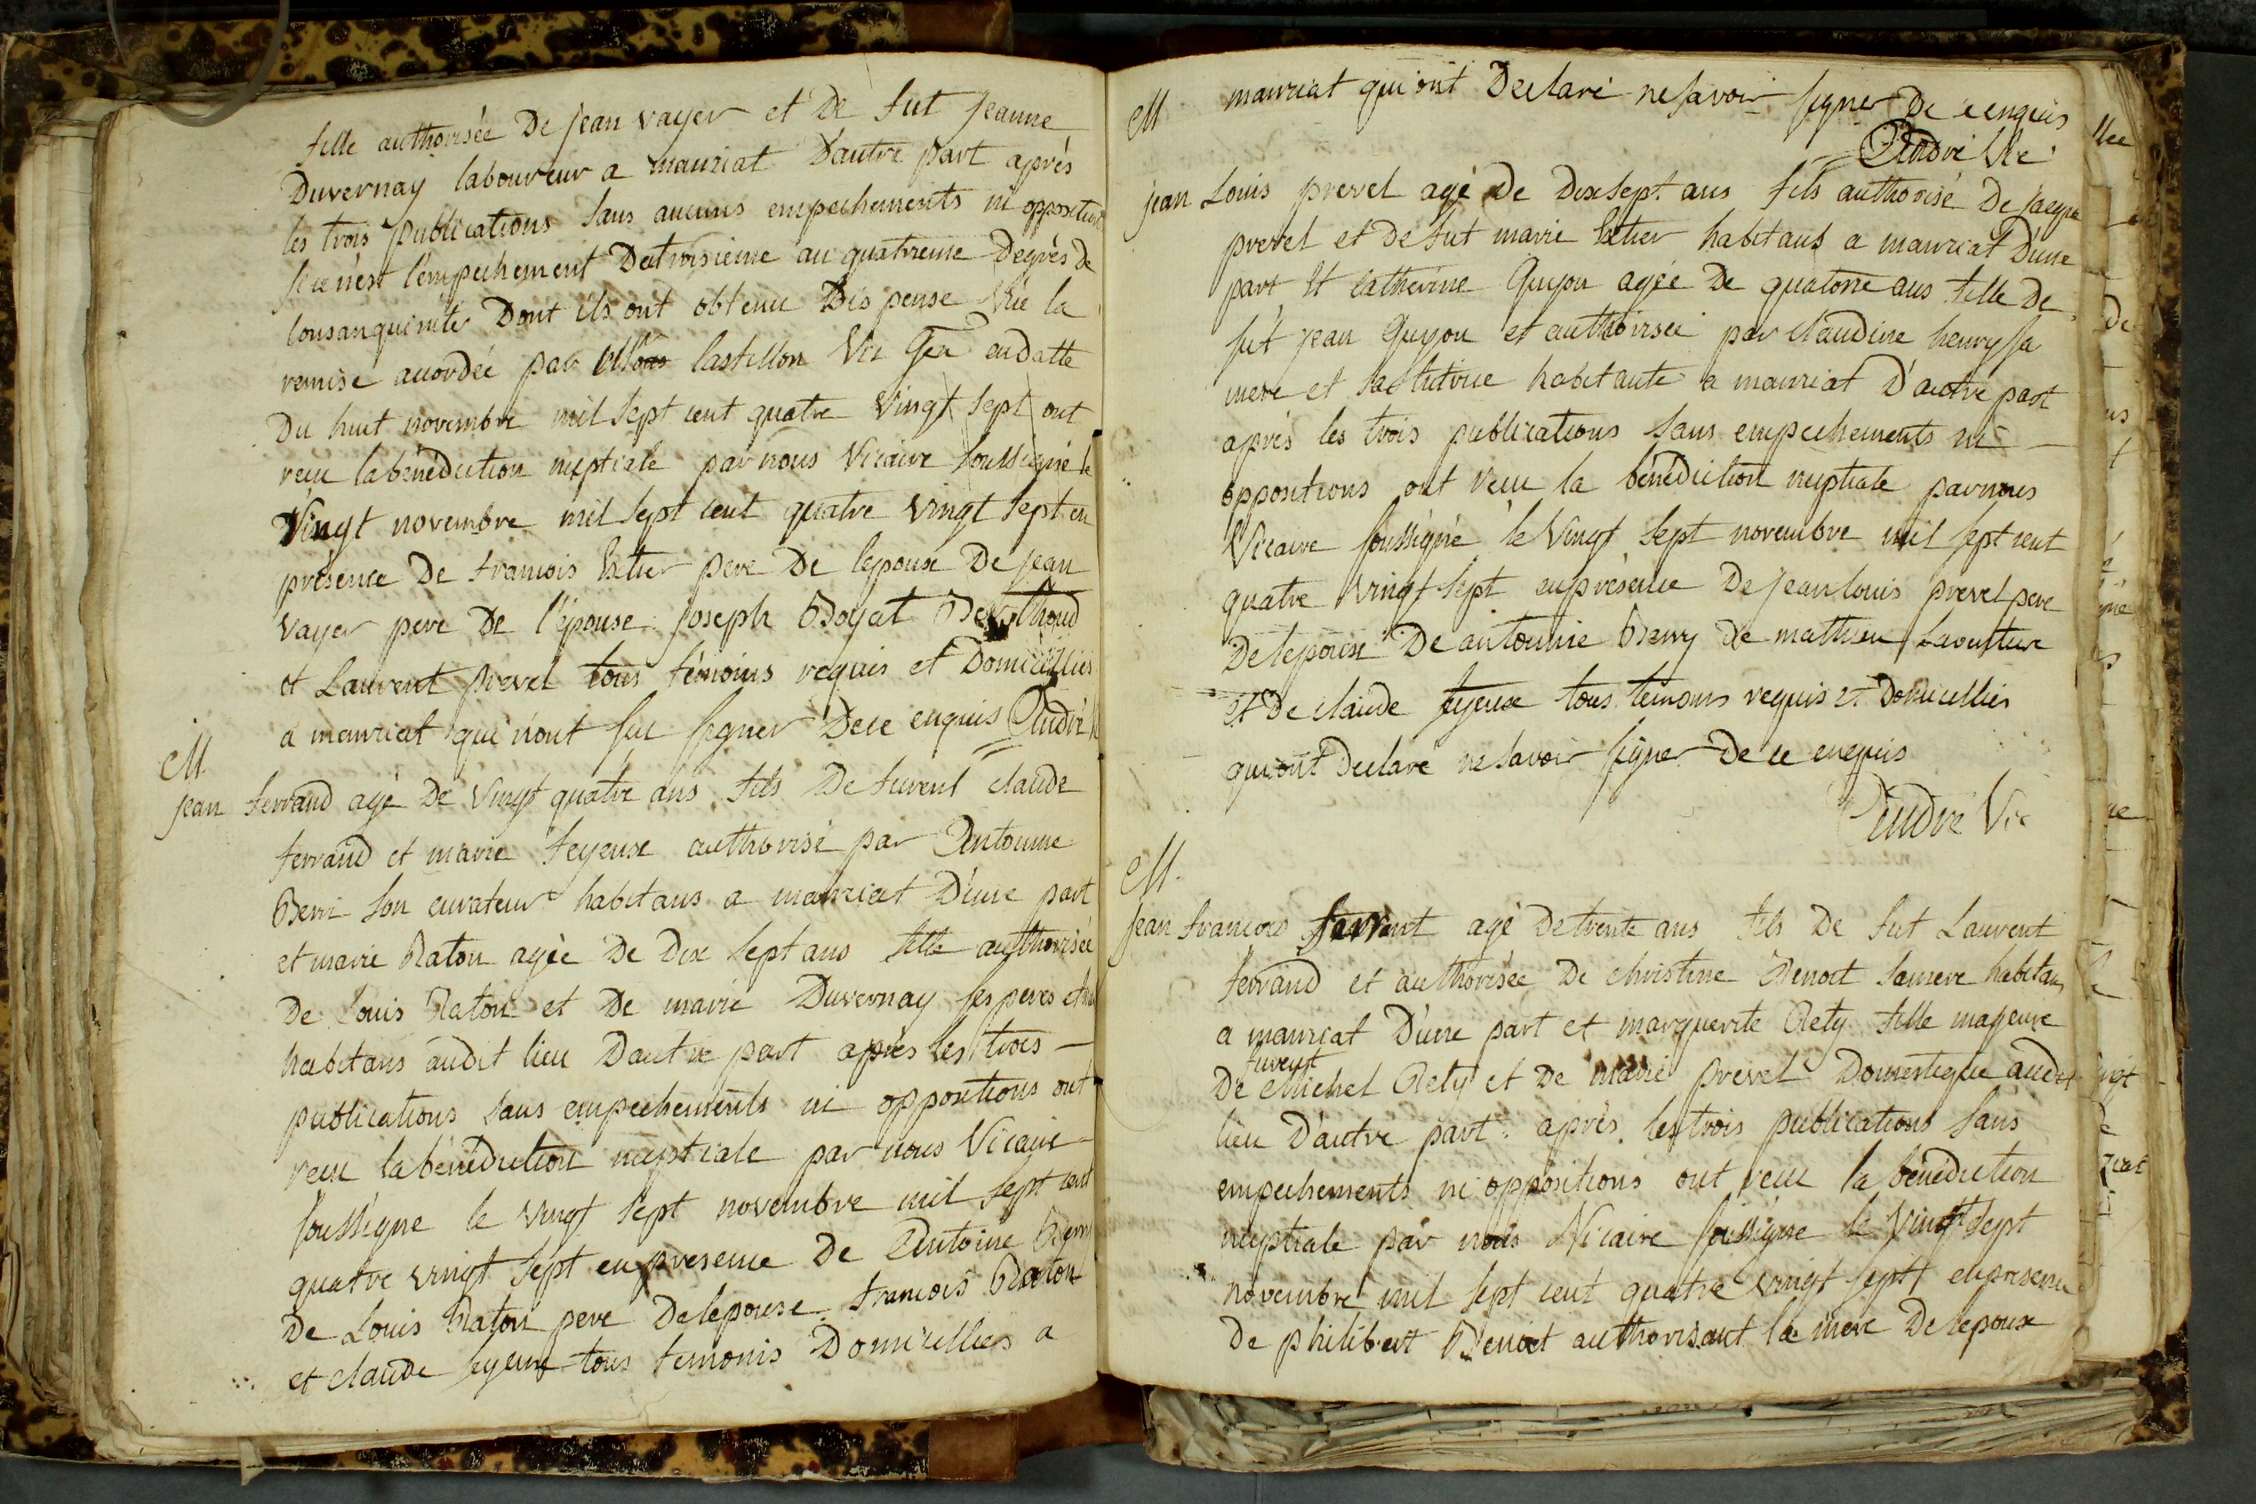 fille authorisée De jean vayer et De fut jeanne
Duvernay laboureur a mauziat D'autre part après
les trois publications sans aucuns empechements ni opposition
si ce n'est l'empechement Detroisieme au quatrieme Degrès de
Consanguinité Dont ils ont obtenu Dispense Vûe la
remise accordée par Castillon Vic Gen endatte
Du huit novembre mil sept cent quatre vingt sept ont
recu labénédiction nuptiale par nous Vicaire soussigné le
Vingt novembre mil sept cent quatre vingt sept en
présence De francois pere De lepoux De jean
vayer pere De l'épouse joseph Boyat Berthoud
et Laurent prevel tous témoins requis et Domicilliés
a mauziat qui n'ont su signer Dece enquis André
M
jean ferrand agé De vingt quatre ans fils De furent claude
ferrand et marie feyeux authorisé par Antoinne
Berri son curateur habitans a mauziat D'une part
et marie Raton agée De Dix sept ans fille authorisée
De Louis Raton et De marie Duvernay ses peres et
habitans audit lieu Dautre part après les trois
publications sans empechements ni oppositions ont
recu labénédiction nuptiale par nous Vicaire
soussigne le vingt sept novembre mil sept cent
quatre vingt sept enpresence De Antoine Berry
De Louis Raton pere Delepouse francois Raton
et claude feyeux tous temoins Domicilliés a
mauziat qui ont Declaré nesavoir signer De ce enquis
André Vic
M
jean Louis prevel agé De Dixsept ans fils authorisé De jacque
prevel et De fut marie habitans a mauziat D'une
part Et catherine Guyon agée De quatorze ans fille De
fut jean Guyon et authorisée par claudine henry sa
mere et sa tutrice habitante a mauziat D'autre part
après les trois publications sans empechements ni
oppositions ont recu la bénédiction nuptiale parnous
Vicaire soussigné le Vingt sept novembre mil sept cent
quatre vingt sept enprésence De jean louis prevel pere
Delepoux De antoinne Berry De mathieu
et De claude feyeux tous temoins requis et Domicilliés
qui ont Declaré ne savoir signer De ce enquis
André Vic
M.
jean francois ferrent agé Detrente ans fils De fut Laurent
ferrand et authorisée De christine Benoit samere habitans
a mauziat D'une part et marguerite Rety fille majeure
furent
De michel Rety et De marie prevel Domestique audit
lieu D'autre part après les trois publications sans
empechements ni oppositions ont recu la bénédiction
nuptiale par nous Vicaire soussigne le Vingt sept
novembre mil sept cent quatre vingt sept enpresence
De philibert Benoit authorisant la mere De lepoux